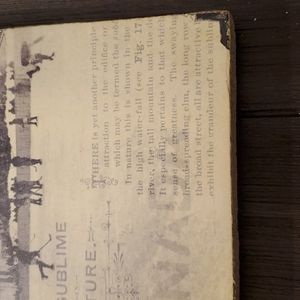 THERE is yet another principle
attraction to the edifice or
which may be termed the sub
In nature this is shown in the
the high water-fall (see Fig. 17
river, the tall mountain and the
It especially pertains to that which
sense of greatness. The swaying
broad-spreading elm, the long row
the broad street, all are attractive
exhibit the grandeur of the sublim
SUBLIME
TURE.